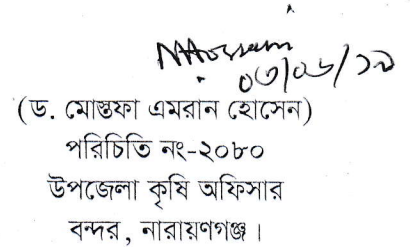 MHossain
০৩/০৬/১৯
(ড. মোস্তফা এমরান হোসেন)
পরিচিতি নং-২০৮০
উপজেলা কৃষি অফিসার
বন্দর, নারায়ণগঞ্জ।